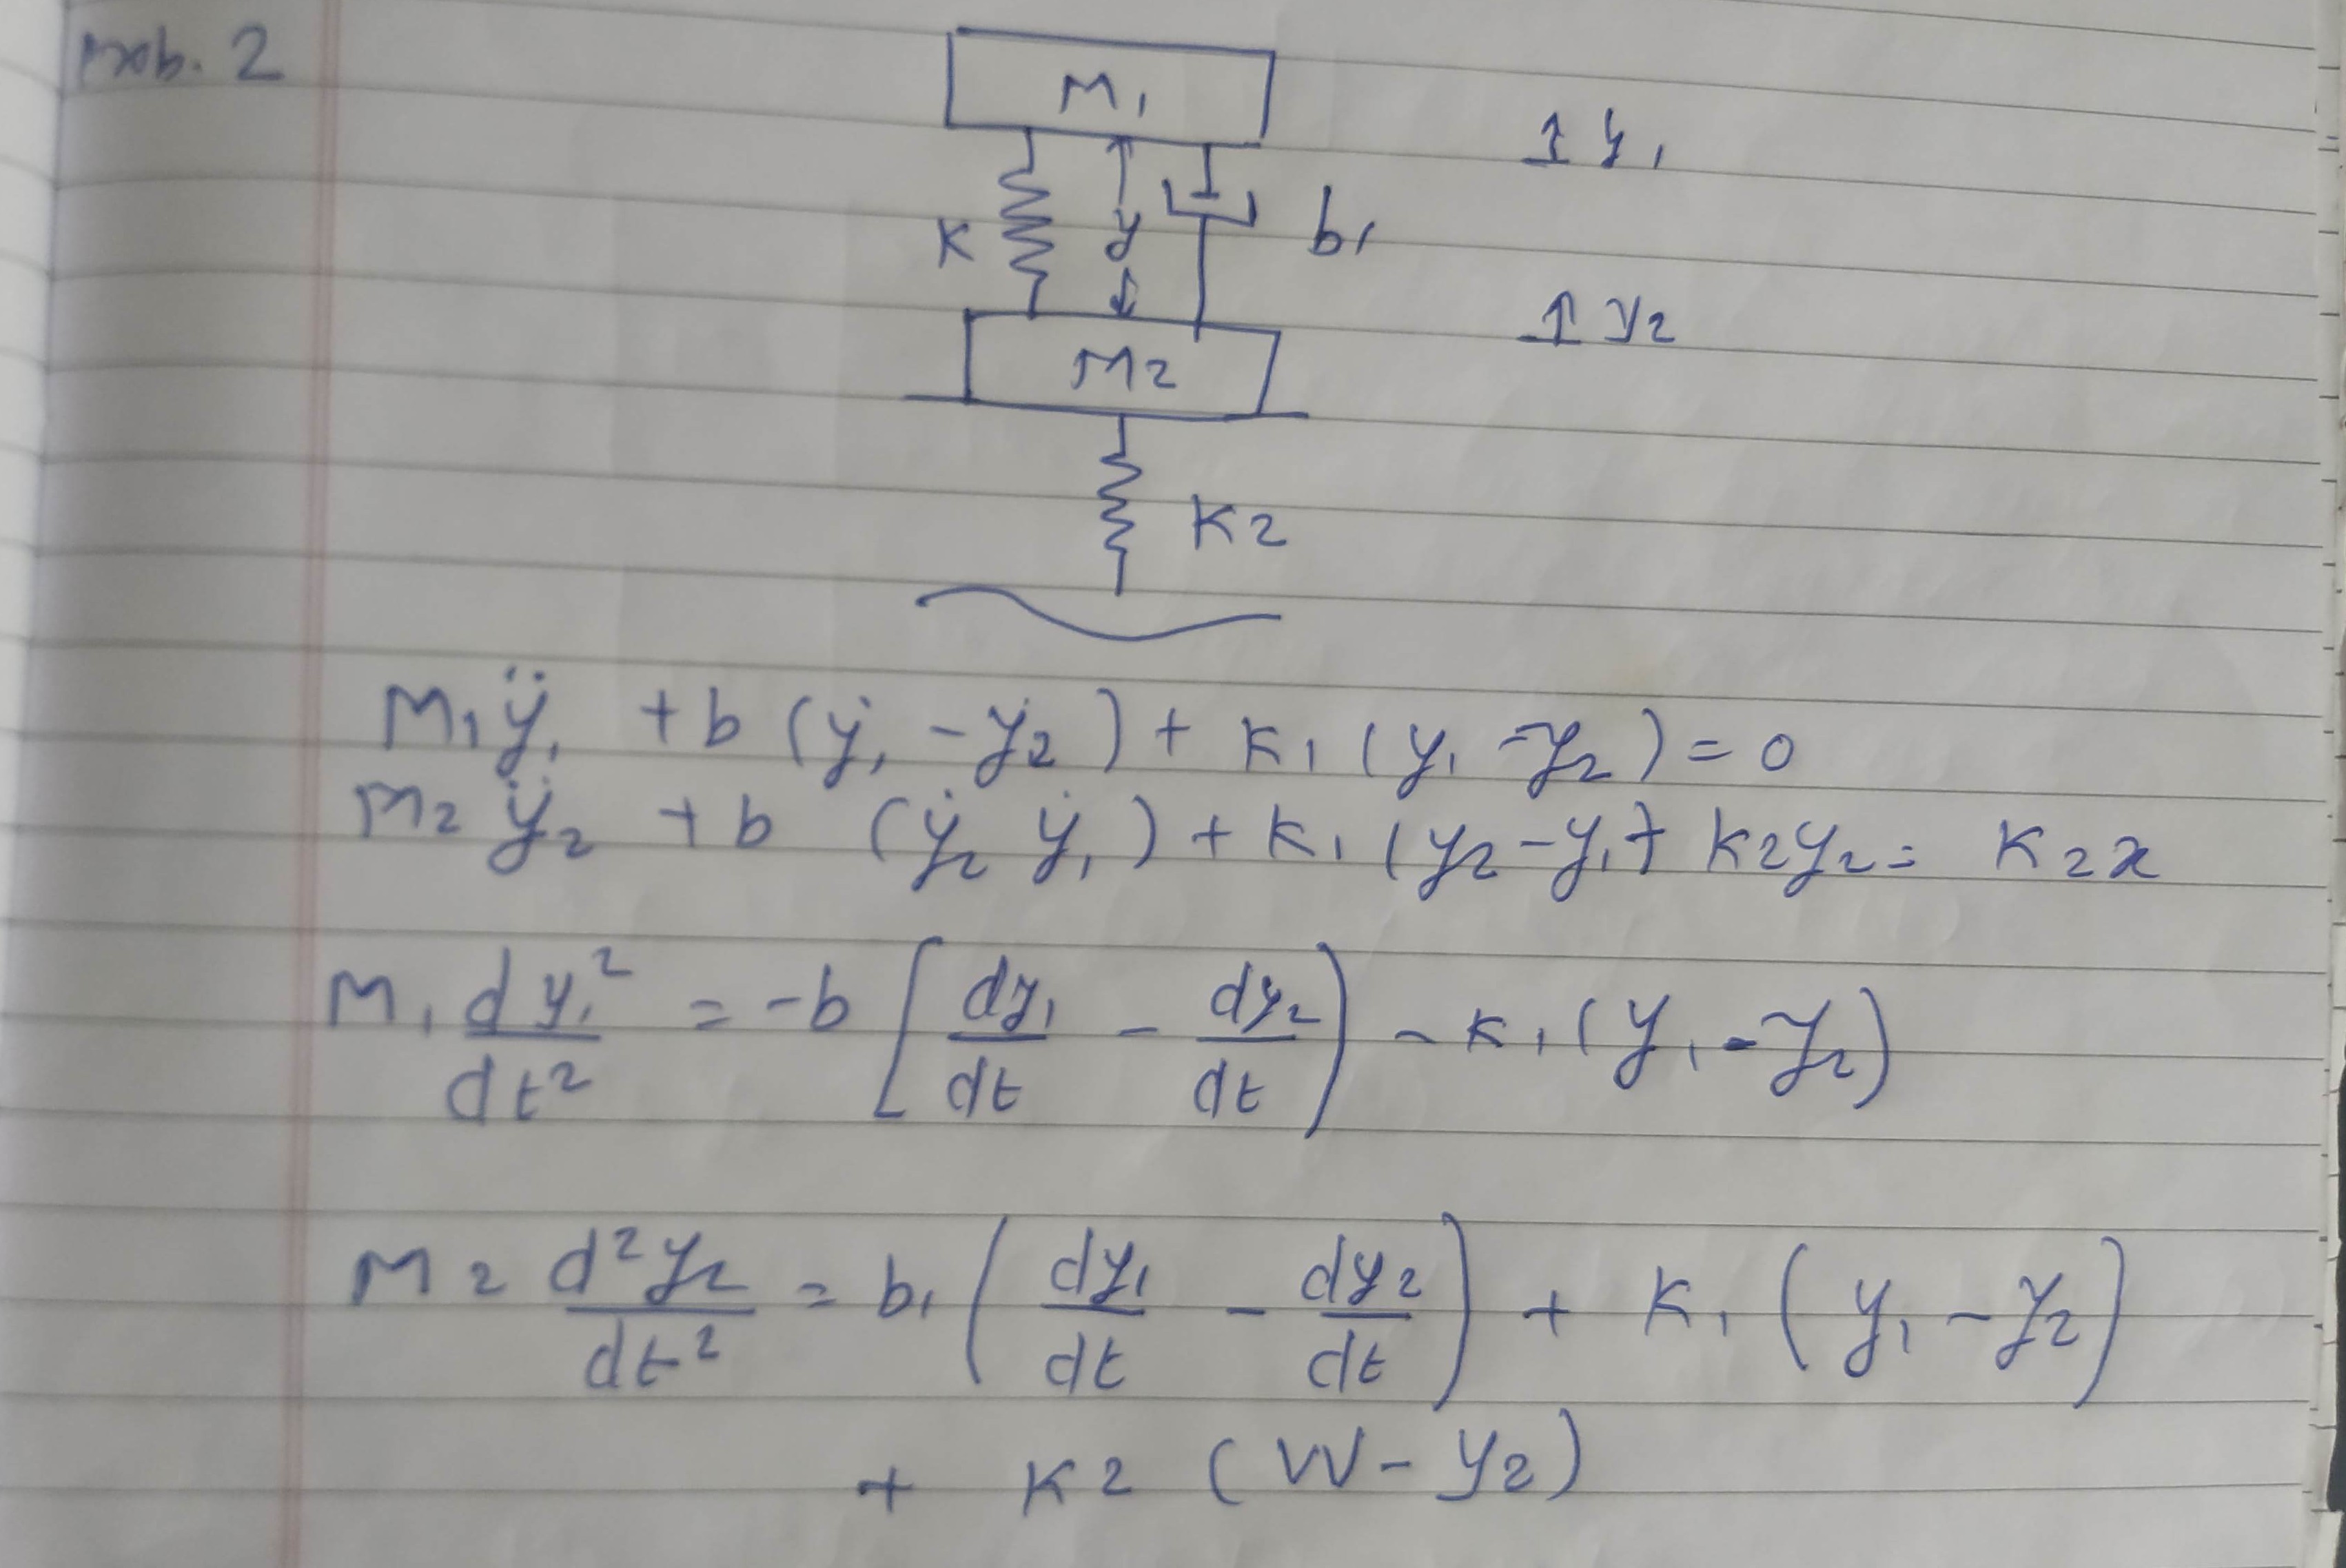 Prob. 2
M₁
↑ y₁
K y b₁
↑ y₂
M₂
K₂
M₁ÿ₁ + b (ẏ₁ - ẏ₂) + K₁ (y₁ - y₂) = 0
M₂ ÿ₂ + b (ẏ₂ ẏ₁) + K₁ (y₂ - y₁ + K₂y₂ = K₂x
M₁ dy₁²/dt² = -b [dy₁/dt - dy₂/dt) - K₁ (y₁ - y₂)
M₂ d²y₂/dt² = b₁ (dy₁/dt - dy₂/dt) + K₁ (y₁ - y₂)
+ K₂ (W - y₂)